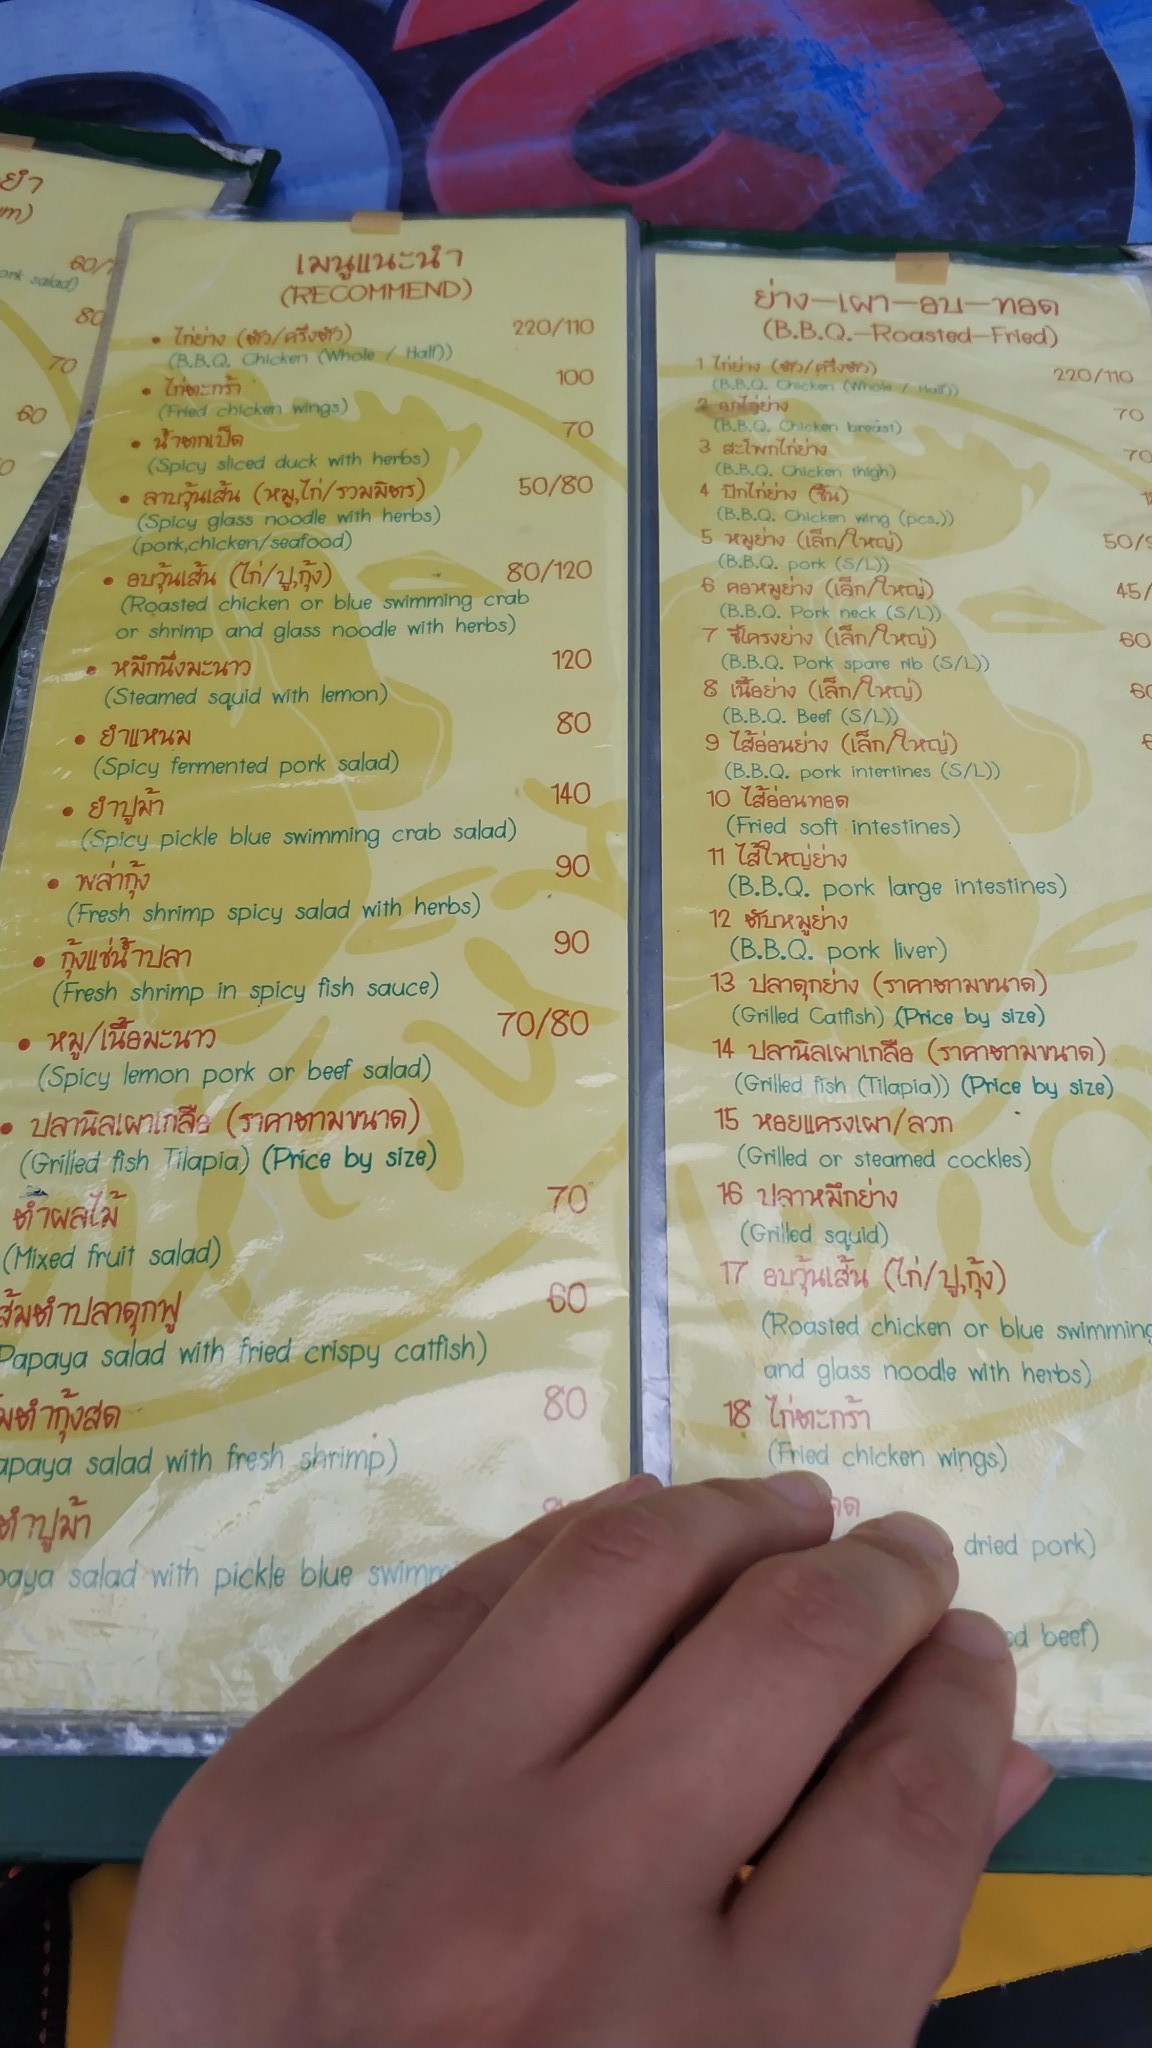 ยำ
60/
ork salad)
80
70
60
เมนูแนะนำ
(RECOMMEND)
• ไก่ย่าง (ตัว/ครึ่งตัว) 220/110
(B.B.Q. Chicken (Whole / Half))
• ไก่ตะกร้า 100
(Fried chicken wings)
• น้ำตกเป็ด 70
(Spicy sliced duck with herbs)
• ลาบวุ้นเส้น (หมู,ไก่/รวมมิตร) 50/80
(Spicy glass noodle with herbs)
(pork,chicken/seafood)
• อบวุ้นเส้น (ไก่/ปู,กุ้ง) 80/120
(Roasted chicken or blue swimming crab
or shrimp and glass noodle with herbs)
• หมึกนึ่งมะนาว 120
(Steamed squid with lemon)
• ยำแหนม 80
(Spicy fermented pork salad)
• ยำปูม้า 140
(Spicy pickle blue swimming crab salad)
• พล่ากุ้ง 90
(Fresh shrimp spicy salad with herbs)
• กุ้งแช่น้ำปลา 90
(Fresh shrimp in spicy fish sauce)
• หมู/เนื้อมะนาว 70/80
(Spicy lemon pork or beef salad)
• ปลานิลเผาเกลือ (ราคาตามขนาด)
(Grilled fish Tilapia) (Price by size)
ตำผลไม้ 70
(Mixed fruit salad)
ส้มตำปลาดุกฟู 60
Papaya salad with fried crispy catfish)
มตำกุ้งสด 80
apaya salad with fresh shrimp)
ตำปูม้า
paya salad with pickle blue swimm
ย่าง-เผา-อบ-ทอด
(B.B.Q.-Roasted-Fried)
1 ไก่ย่าง (ตัว/ครึ่งตัว) 220/110
(B.B.Q. Chicken (Whole / Half))
2 อกไก่ย่าง 70
(B.B.Q. Chicken breast)
3 สะโพกไก่ย่าง 70
(B.B.Q. Chicken thigh)
4 ปีกไก่ย่าง (ชิ้น)
(B.B.Q. Chicken wing (pcs.))
5 หมูย่าง (เล็ก/ใหญ่) 50/
(B.B.Q. pork (S/L))
6 คอหมูย่าง (เล็ก/ใหญ่) 45/
(B.B.Q. Pork neck (S/L))
7 ซี่โครงย่าง (เล็ก/ใหญ่) 60
(B.B.Q. Pork spare rib (S/L))
8 เนื้อย่าง (เล็ก/ใหญ่) 60
(B.B.Q. Beef (S/L))
9 ไส้อ่อนย่าง (เล็ก/ใหญ่)
(B.B.Q. pork intertines (S/L))
10 ไส้อ่อนทอด
(Fried soft intestines)
11 ไส้ใหญ่ย่าง
(B.B.Q. pork large intestines)
12 ตับหมูย่าง
(B.B.Q. pork liver)
13 ปลาดุกย่าง (ราคาตามขนาด)
(Grilled Catfish) (Price by size)
14 ปลานิลเผาเกลือ (ราคาตามขนาด)
(Grilled fish (Tilapia)) (Price by size)
15 หอยแครงเผา/ลวก
(Grilled or steamed cockles)
16 ปลาหมึกย่าง
(Grilled squid)
17 อบวุ้นเส้น (ไก่/ปู,กุ้ง)
(Roasted chicken or blue swimming
and glass noodle with herbs)
18 ไก่ตะกร้า
(Fried chicken wings)
dried pork)
ed beef)